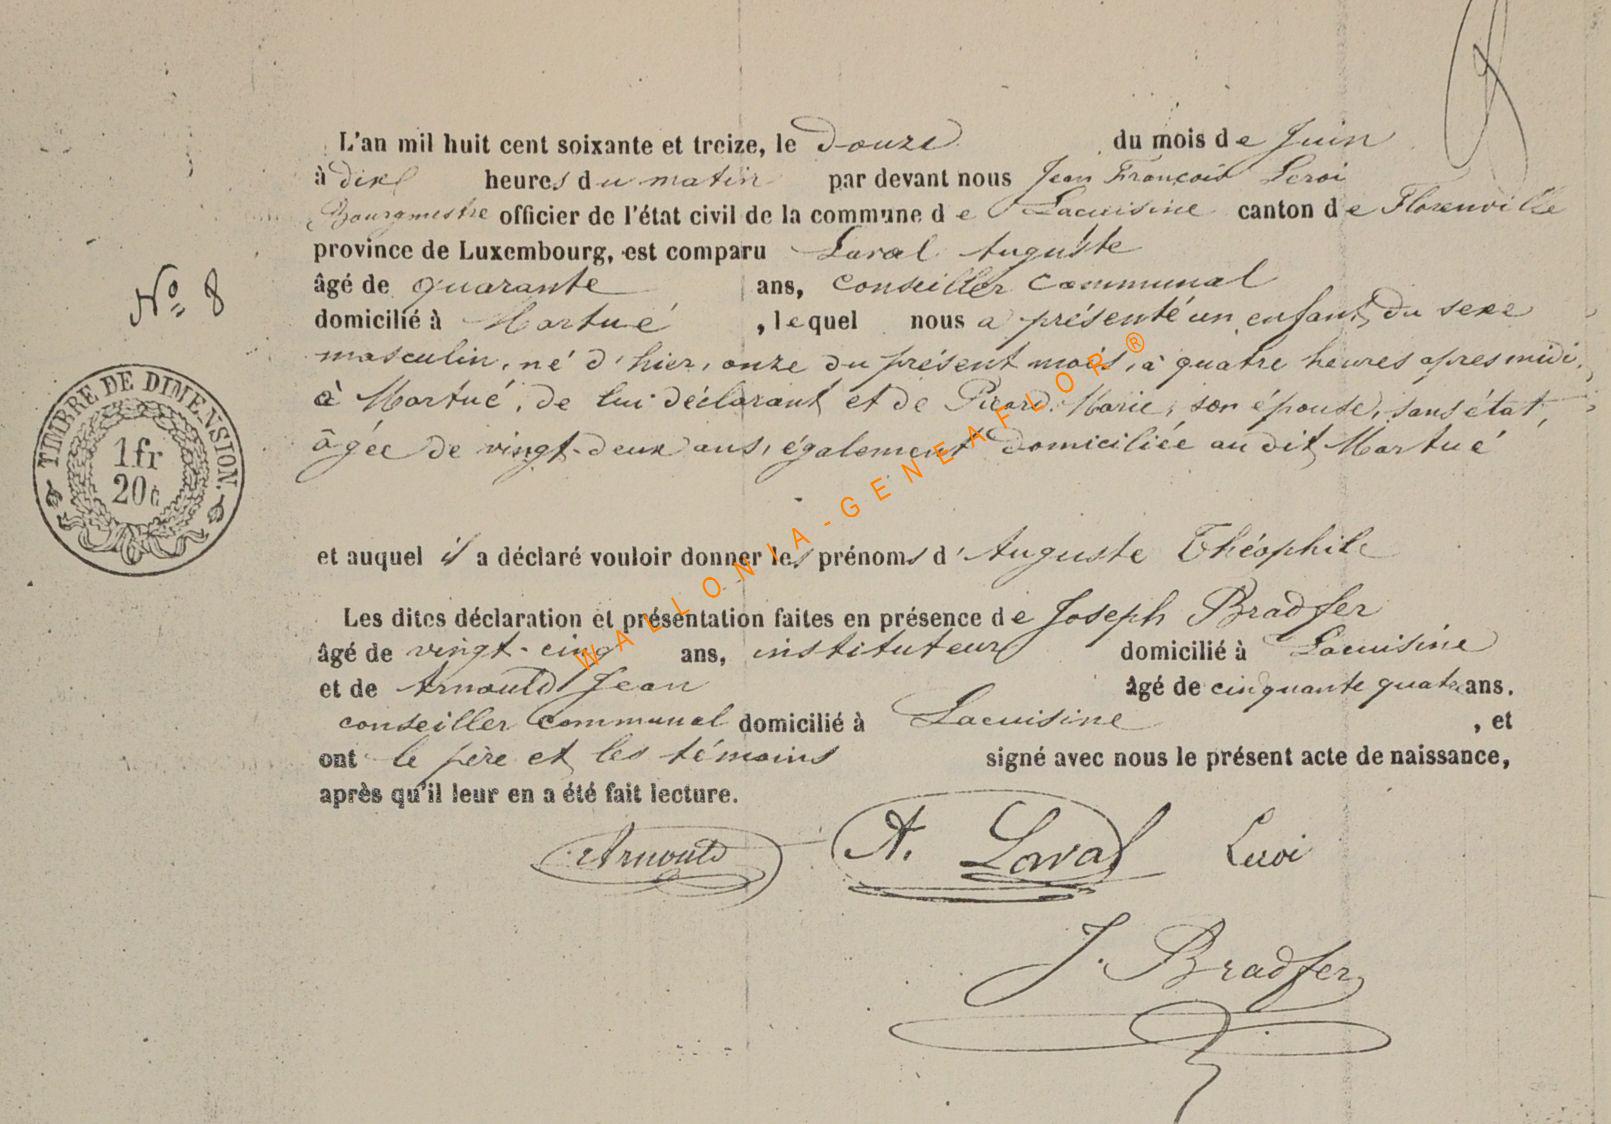 L'an mil huit cent soixante et treize, le Douze du mois de Juin
à dix heures du matin par devant nous Jean François Leroi
Bourgmestre officier de l'état civil de la commune de Lacuisine canton de Florenville
province de Luxembourg, est comparu Laval Auguste
âgé de quarante ans, conseiller communal
N° 8
domicilié à Martué, lequel nous a présenté un enfant du sexe
masculin, né d'hier, onze du présent mois, à quatre heures apres midi,
à Martué, de lui déclarant et de Picard Marie, son épouse, sans état,
âgée de vingt-deux ans, également domiciliée au dit Martué
TIMBRE DE DIMENSION.
1 fr
20 c
et auquel il a déclaré vouloir donner les prénoms d'Auguste Théophile
Les dites déclaration et présentation faites en présence de Joseph Bradfer
âgé de vingt-cinq ans, instituteur domicilié à Lacuisine
et de Arnould Jean âgé de cinquante quatre ans.
conseiller communal domicilié à Lacuisine, et
ont le père et les témoins signé avec nous le présent acte de naissance,
après qu'il leur en a été fait lecture.
Arnould A. Laval Leroi
J. Bradfer
WALLONIA-GENEAFLOR®